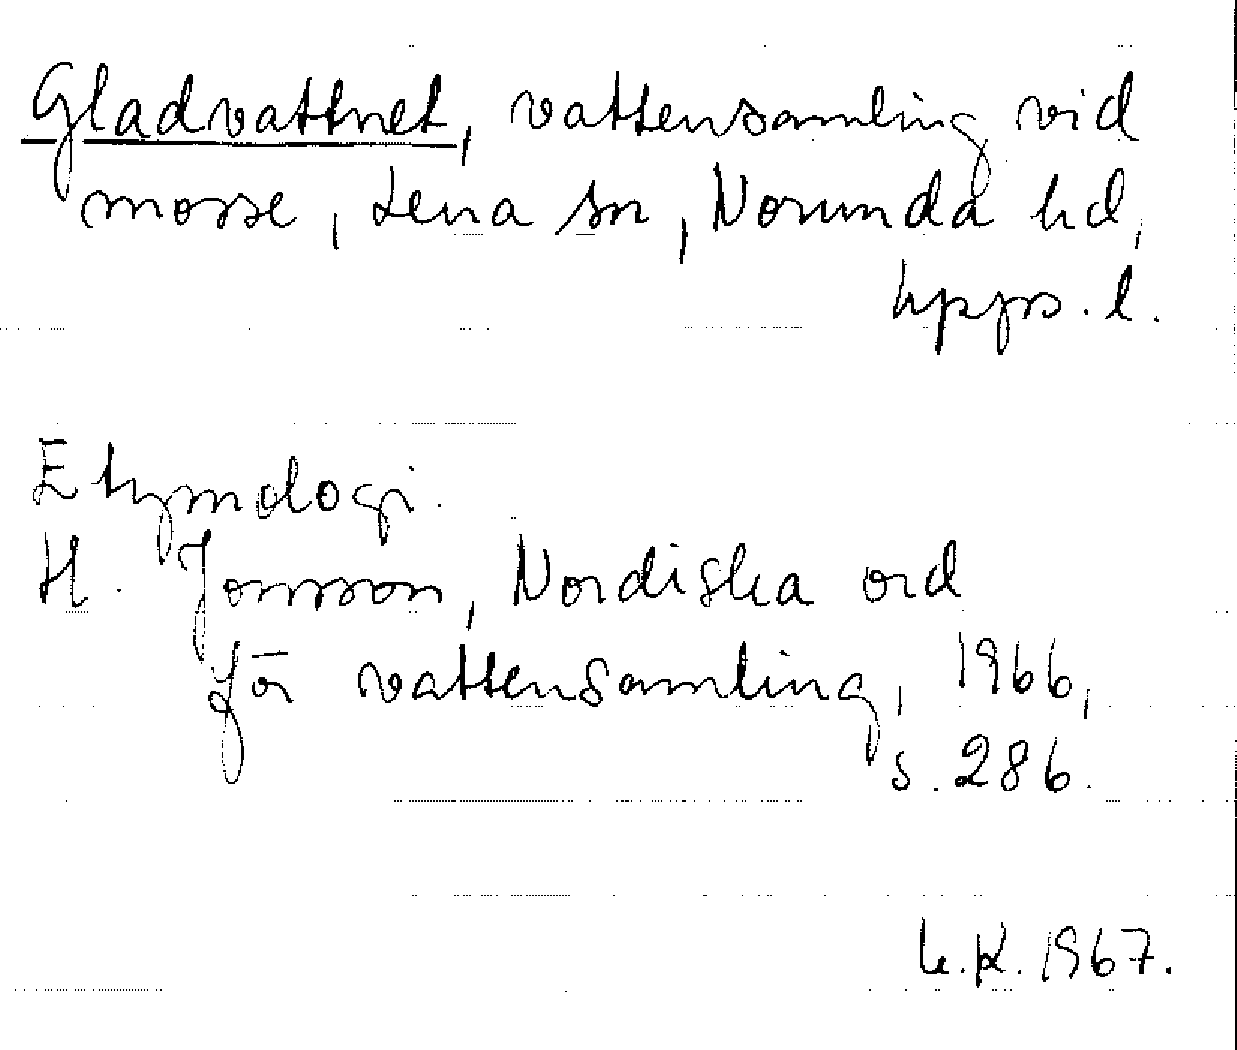 Gladvattnet, vattensamling vid
mosse, Lena sn, Norunda hd,
Upps. l.
Etymologi.
H. Jonsson, Nordiska ord
för vattensamling, 1966,
s. 286.
L.K. 1967.